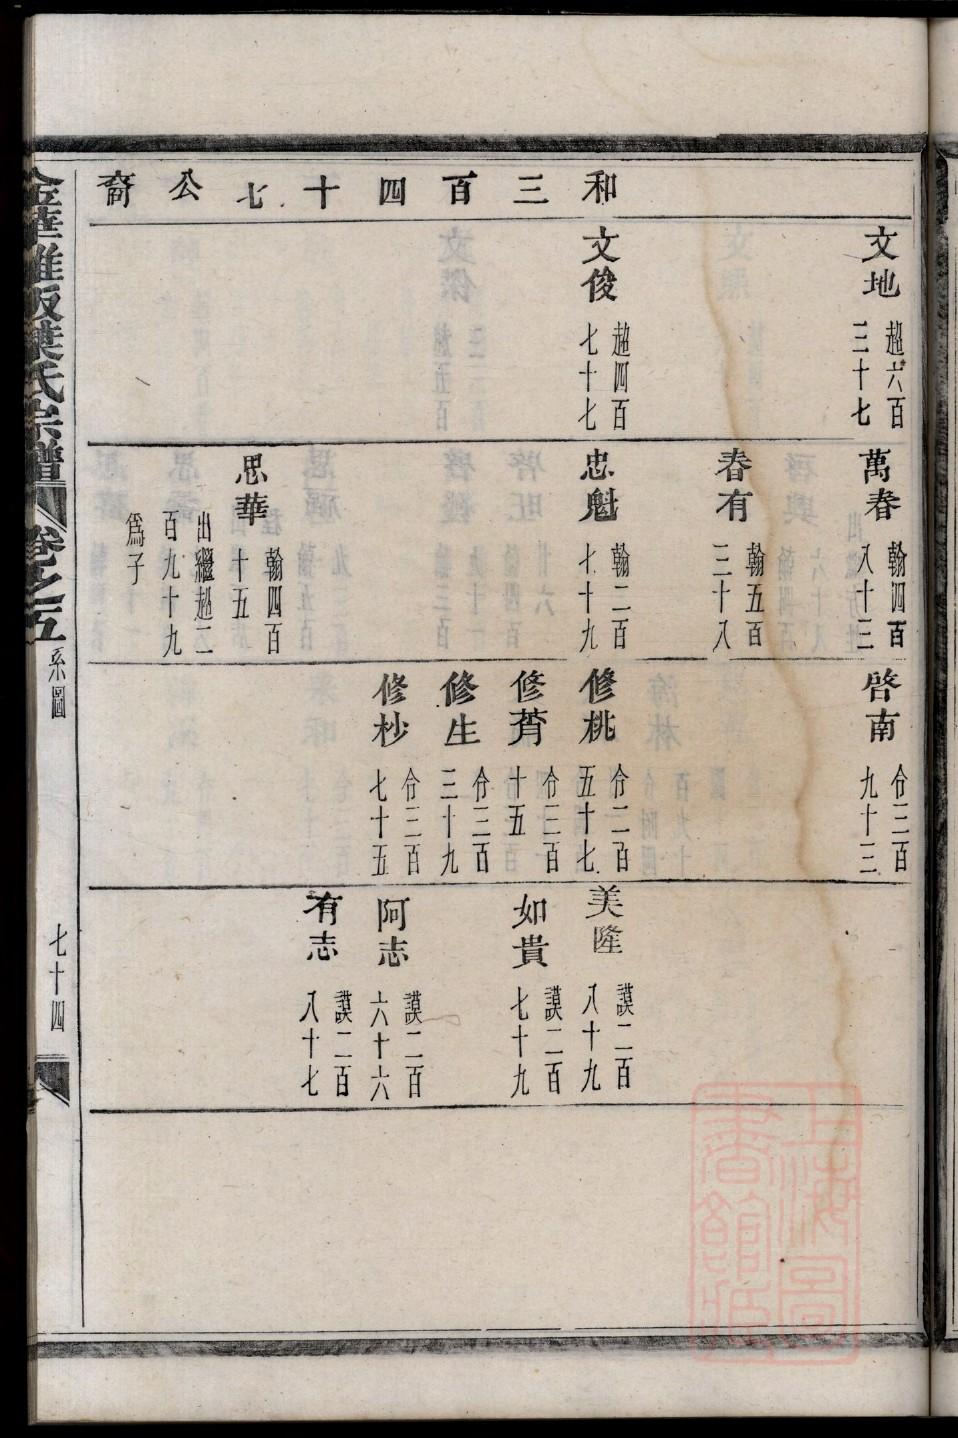 和三百四十七公裔
文地 超六百三十七
文俊 超四百七十七
萬春 翰四百八十三
春有 翰五百三十八
忠魁 翰二百七十九
思華 翰四百十五
出繼超二百九十九爲子
啓南 佾三百九十三
修桃 佾二百五十七
佾三百十五
修生 佾三百三十九
修杪 佾三百七十五
美隆 謨二百八十九
如貴 謨二百七十九
阿志 謨二百六十六
有志 謨二百八十七
金華雅畈葉氏宗譜 卷之五 系圖 七十四
上海圖書館藏